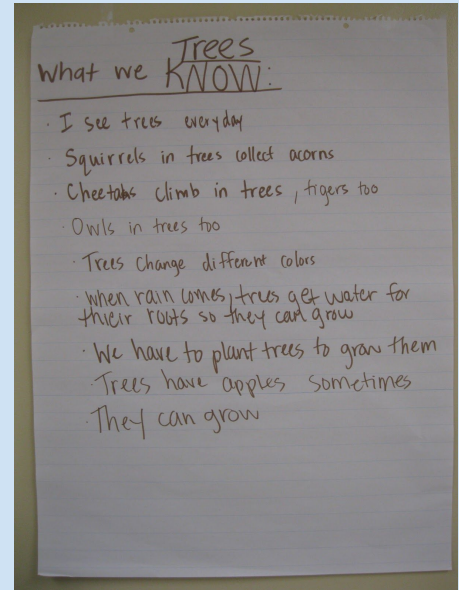 Trees
What we KNOW:
· I see trees everyday
· Squirrels in trees collect acorns
· Cheetahs climb in trees, tigers too
· Owls in trees too
· Trees change different colors
· when rain comes, trees get water for
thier roots so they can grow
· We have to plant trees to grow them
· Trees have apples sometimes
· They can grow